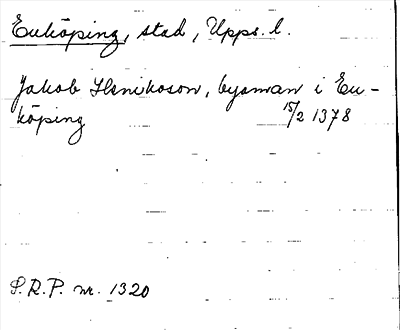 Enköping, stad, Upps. l.
Jakob Henikson, byaman i En-
köping 15/2 1378
S.R.P. nr. 1320